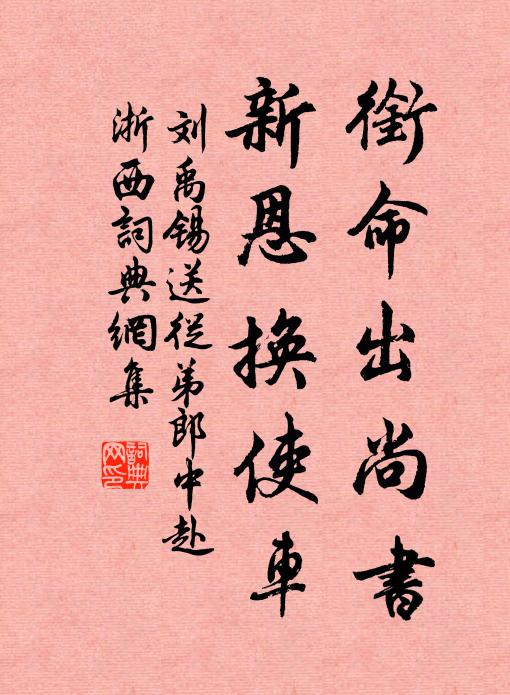 銜命出尚書
新恩換使車
刘禹锡送從弟郎中赴
浙西詞典網集
詞典
网印